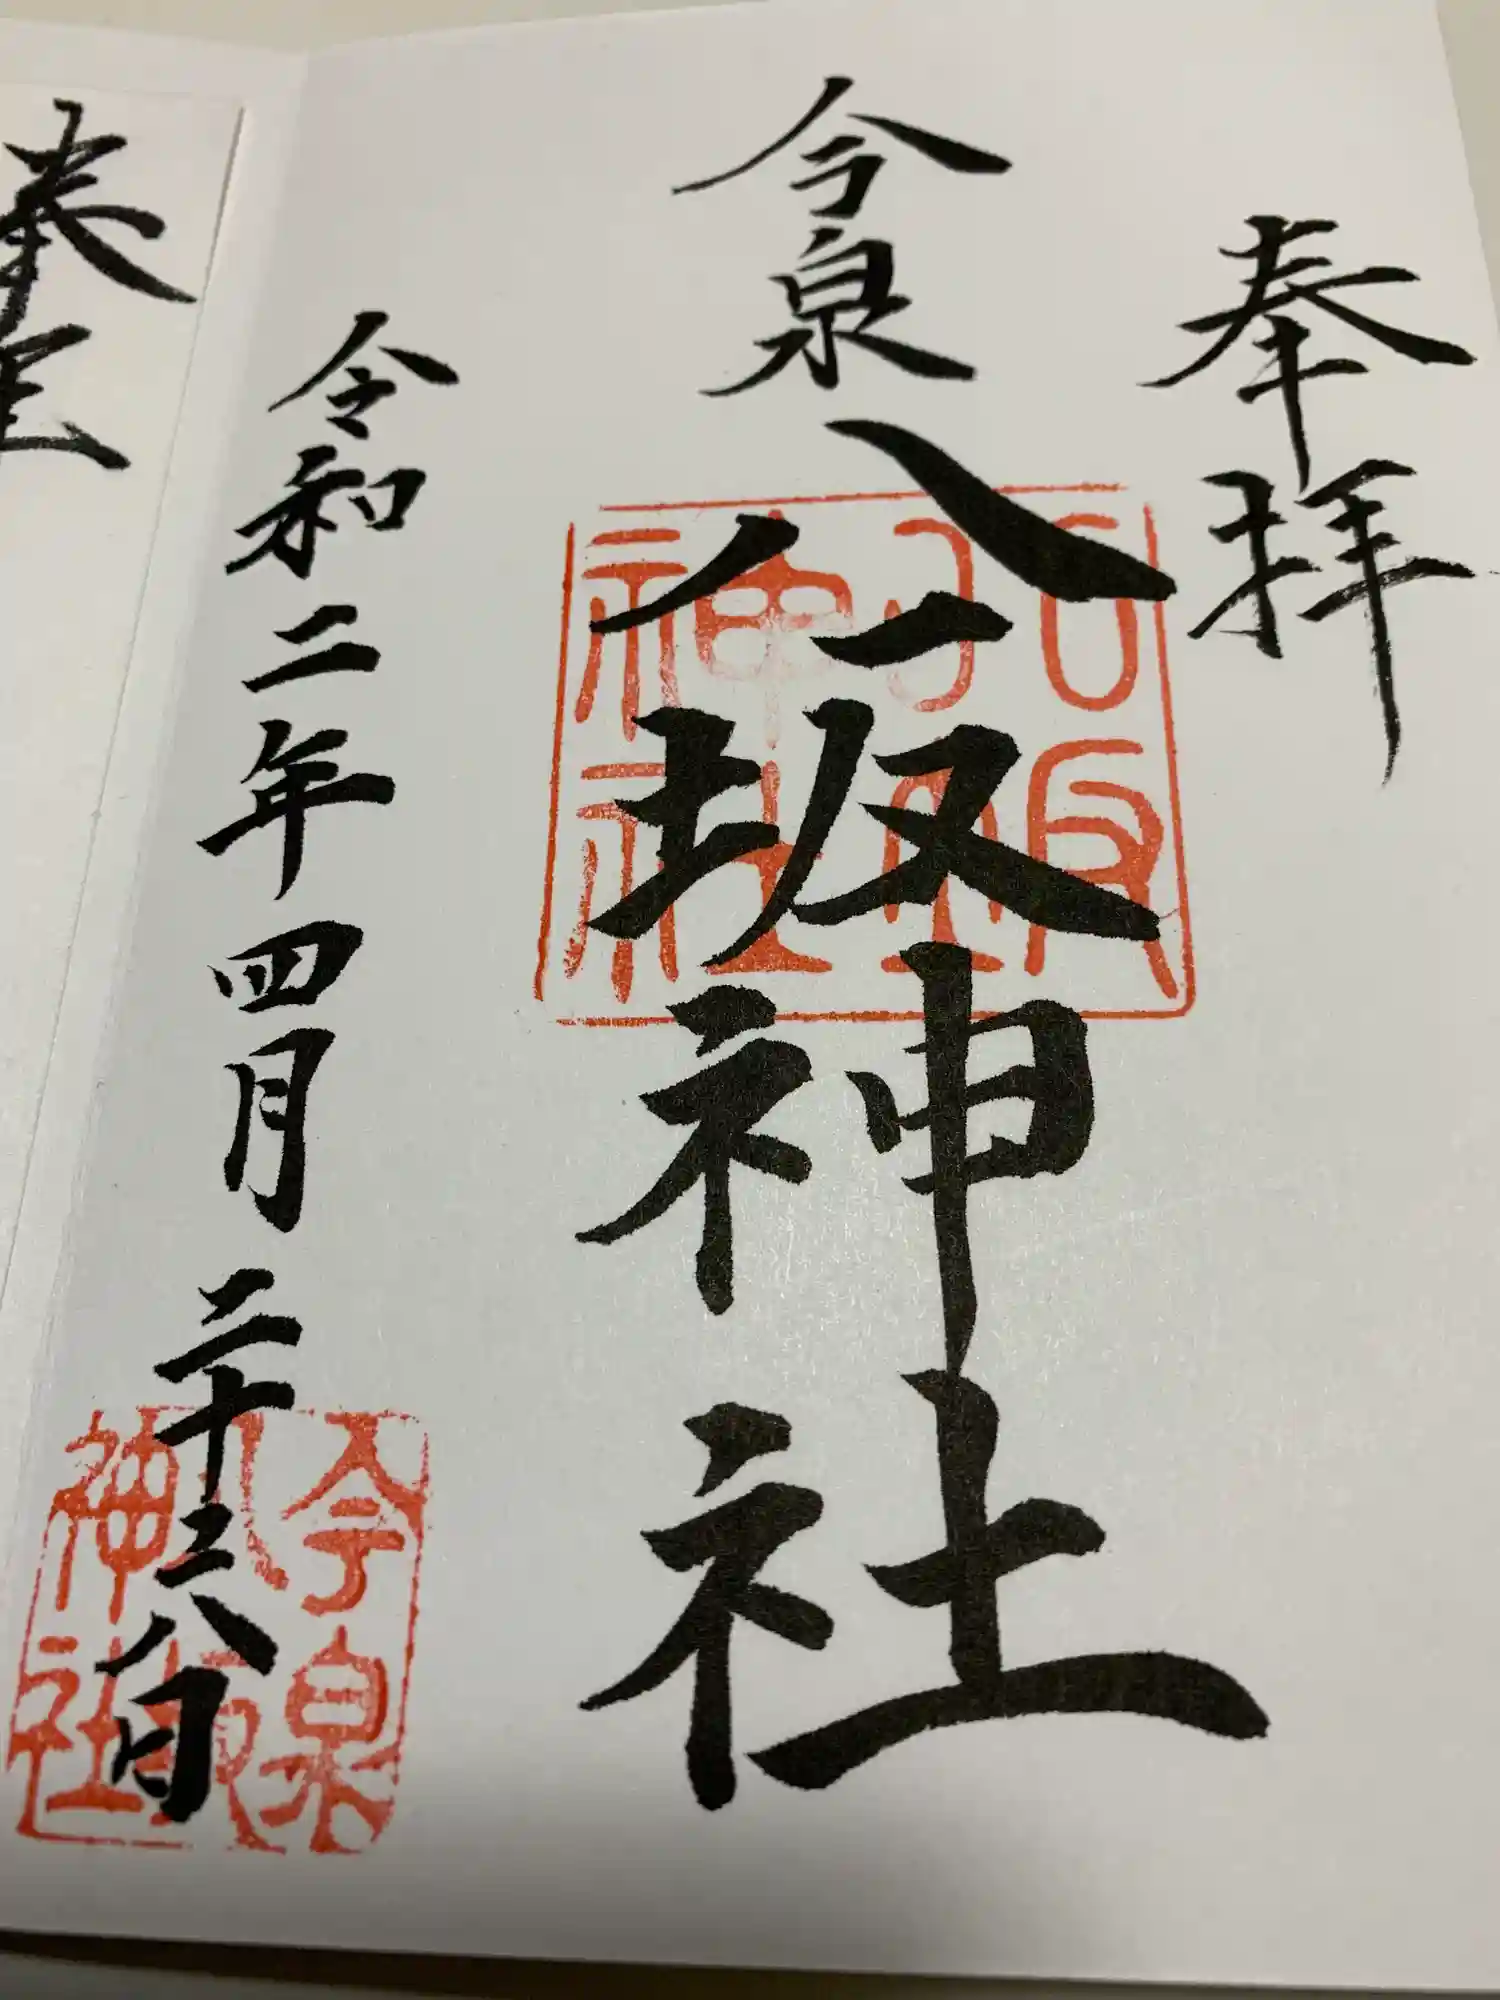 奉拝
今泉
八坂神社
令和二年四月二十三八日
八坂神社
今泉八坂神社